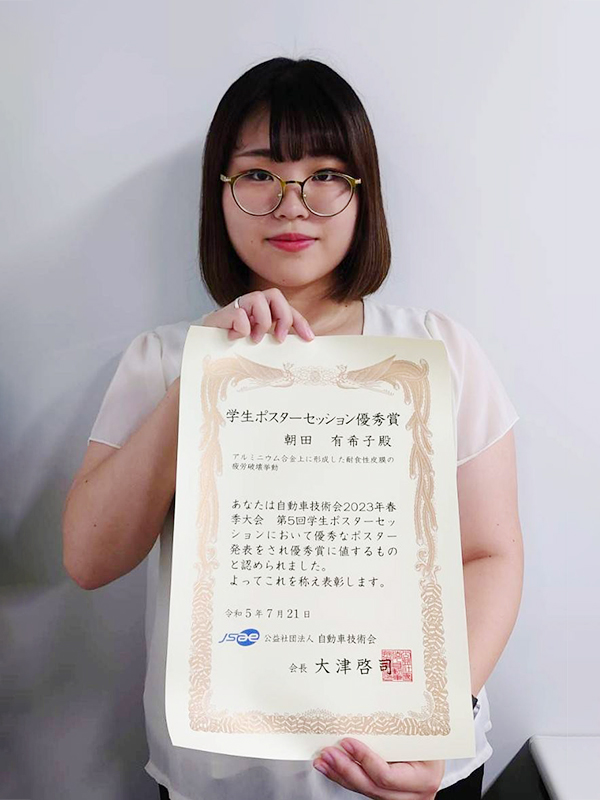 学生ポスターセッション優秀賞
朝田 有希子殿
アルミニウム合金上に形成した耐食性皮膜の
疲労破壊挙動
あなたは自動車技術会2023年春
季大会 第5回学生ポスターセッ
ションにおいて優秀なポスター
発表をされ優秀賞に値するもの
と認められました。
よってこれを称え表彰します。
令和5年7月21日
JSAE 公益社団法人 自動車技術会
会長 大津啓司